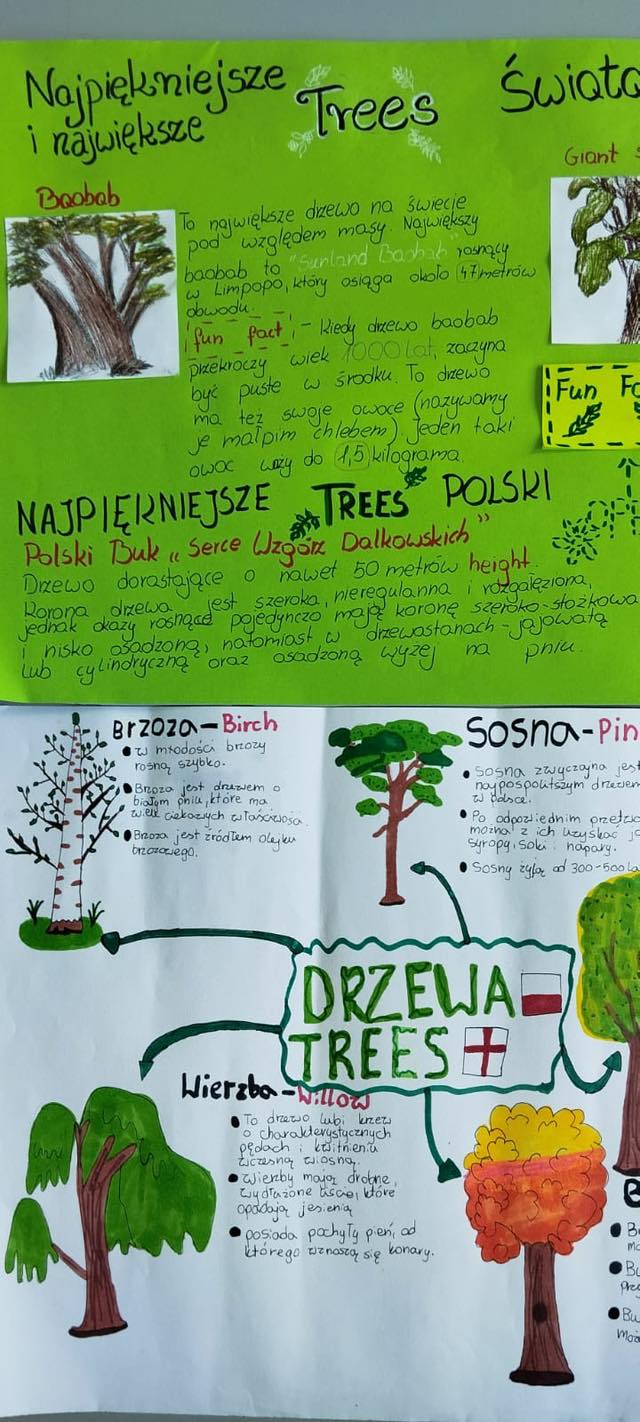 Najpiękniejsze
i największe
Trees
Świata
Baobab
To największe drzewo na świecie
pod względem masy. Największy
baobab to "Sunland Baobab" rosnący
w Limpopo, który osiąga około 47 metrów
obwodu.
fun fact - Kiedy drzewo baobab
przekroczy wiek 1000 lat, zaczyna
być puste w środku. To drzewo
ma też swoje owoce (nazywamy
je małpim chlebem). Jeden taki
owoc waży do 1,5 kilograma.
Giant
Fun
NAJPIĘKNIEJSZE TREES POLSKI
Polski Buk "Serce Wzgórz Dalkowskich"
Drzewo dorastające o nawet 50 metrów height.
Korona drzewa jest szeroka, nieregularna i rozgałęziona,
jednak okazy rosnące pojedynczo mają koronę szeroko-stożkową
i nisko osadzoną, natomiast w drzewostanach - jajowatą
lub cylindryczną oraz osadzoną wyżej na pniu.
Brzoza-Birch
w młodości brzozy
rosną szybko.
Brzoza jest drzewem o
białym pniu, które ma
wiele ciekawych właściwości.
Brzoza jest źródłem olejku
brzozowego.
Sosna-Pin
Sosna zwyczajna jest
najpospolitszym drzewem
w Polsce.
Po odpowiednim
można z ich uzyskać
syropy, soki i napary.
Sosny żyją od 300-500
DRZEWA
TREES
Wierzba-Willow
To drzewo lub krzew
o charakterystycznych
pędach i kwitnieniu
wczesną wiosną.
wierzby mają drobne,
wydłużone liście, które
opadają jesienią
posiada pochyły pień, od
którego wznoszą się konary.
B